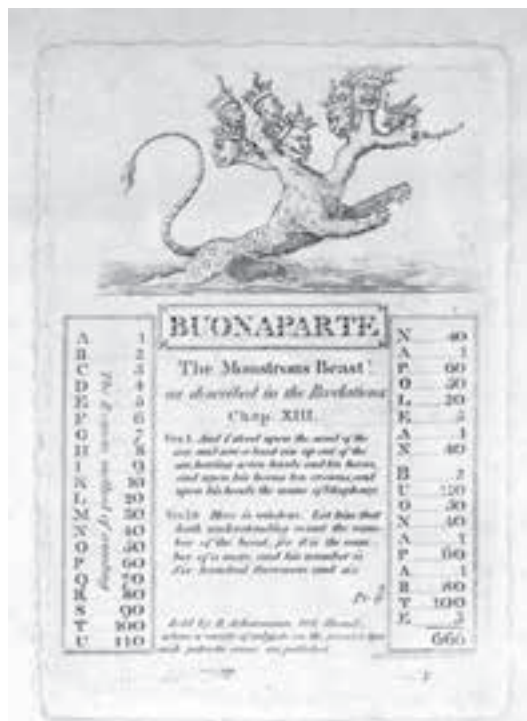 BUONAPARTE
The Monstrous Beast!
as described in the Revelations
Chap. XIII.
Ver. 1. And I stood upon the sand of the
sea, and saw a beast rise up out of the
sea, having seven heads and ten horns,
and upon his horns ten crowns, and
upon his heads the name of blasphemy.
Here is wisdom. Let him that
hath understanding count the num-
ber of the beast, for it is the num-
ber of a man; and his number is
Six hundred threescore and six
Sold by R. Ackermann 101 Strand,
where a variety of subjects on the
with patriotic are published
A 1
B 2
C 3
D 4
E 5
F 6
G 7
H 8
I 9
K 10
L 20
M 30
N 40
O 50
P 60
Q 70
R 80
S 90
T 100
U 110
method of
N 40
A 1
P 60
O 50
L 20
E 5
A 1
N 40
B 2
U 110
O 50
N 40
A 1
P 60
A 1
R 80
T 100
E 5
666